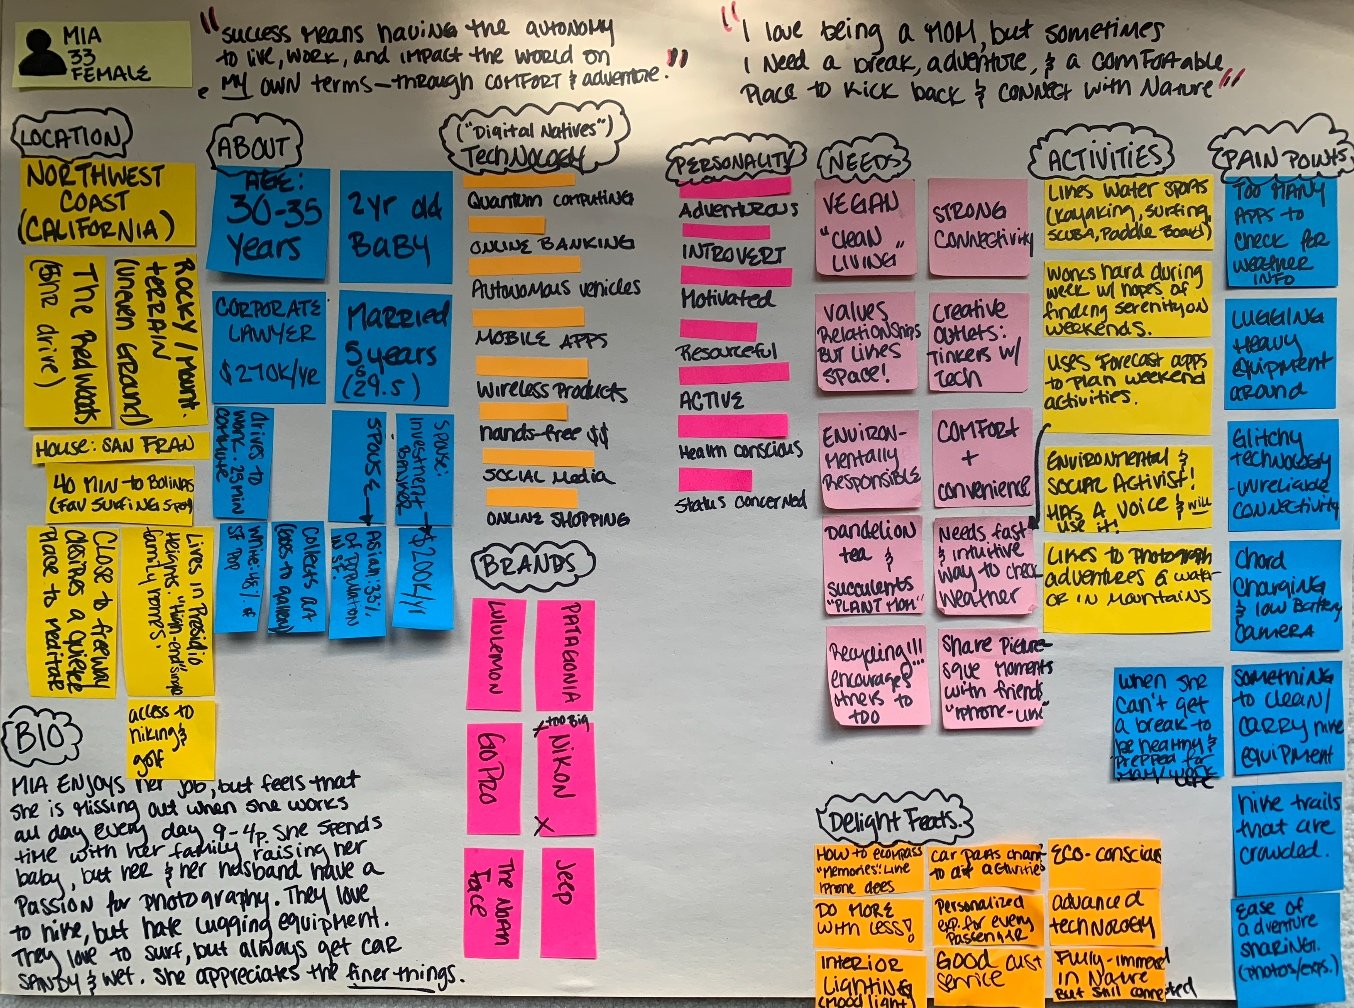 MIA
33
FEMALE
"Success means having the autonomy
to live, work, and impact the world on
my own terms—through comfort & adventure."
"I love being a MOM, but sometimes
I need a break, adventure, & a comfortable
place to kick back & connect with nature"
LOCATION
NORTHWEST
COAST
(CALIFORNIA)
Rocky/Mount.
terrain
(uneven ground)
The Redwoods
(5hr drive)
House: SAN FRAN
40 MIN to Bolinas
(fav surfing spot)
Lives in Presidio
Heights. "High-end" single
family homes.
Close to freeway
desires a quieter
place to meditate
access to
hiking &
golf
ABOUT
AGE:
30-35
years
2yr old
BABY
CORPORATE
LAWYER
$270K/yr
Married
5 years
(29.5)
drives to
work - 25 min
commute
SPOUSE
SPOUSE:
Investment
Banker
White: 48% of
SF POP
Collects art
(goes to gallery)
Asian: 33%
of population
in SF.
$200K/yr
("Digital Natives")
TECHNOLOGY
Quantum computing
ONLINE BANKING
Autonomous vehicles
MOBILE APPS
Wireless Products
hands-free $$
SOCIAL Media
ONLINE SHOPPING
BRANDS
LULULEMON
PATAGONIA
GOPRO
x too Big
NIKON
x
The North
Face
Jeep
PERSONALITY
Adventurous
INTROVERT
Motivated
Resourceful
ACTIVE
Health conscious
Status concerned
NEEDS
VEGAN
"Clean
LIVING"
STRONG
CONNECTIVITY
values
Relationships
But likes
space!
Creative
outlets:
Tinkers w/
Tech
ENVIRON-
mentally
Responsible
COMFORT
+
convenience
Dandelion
tea &
succulents
"PLANT MOM"
Needs fast
& intuitive
way to check
weather
Recycling!!!
encourages
others to
too
Share Picture-
sque moments
with friends
"iphone-like"
ACTIVITIES
Likes water sports
(kayaking, surfing,
SCUBA, Paddle Board)
Works hard during
week w/ hopes of
finding serenity on
weekends.
Uses forecast apps
to plan weekend
activities.
ENVIRONMENTAL &
SOCIAL Activist!
HAS A VOICE & will
use it!
Likes to photograph
adventures @ water
or in mountains
PAIN POINTS
TOO MANY
apps to
check for
weather
INFO
LUGGING
Heavy
equipment
around
Glitchy
technology
-unreliable
CONNECTIVITY
Chord
Charging
& low Battery
camera
when she
can't get
a break to
be healthy &
prepped for
mom/work
LIFE
Something
to clean/
carry hike
equipment
hike trails
that are
crowded.
Ease of
adventure
sharing.
(photos/exps.)
BIO
MIA ENJOYS her job, but feels that
she is missing out when she works
all day every day 9-4p. She spends
time with her family raising her
baby, but her & her husband have a
passion for photography. They love
to hike, but hate lugging equipment.
They love to surf, but always get car
sandy & wet. She appreciates the finer things.
Delight Feats.
How to
"Memories" Like
iphone does
car parts
to activities
Eco-conscious
DO MORE
WITH LESS!
Personalized
exp. for every
passenger
advanced
technology
INTERIOR
Lighting
(Mood light)
Good cust
service
Fully-immersed
in Nature
But still connected